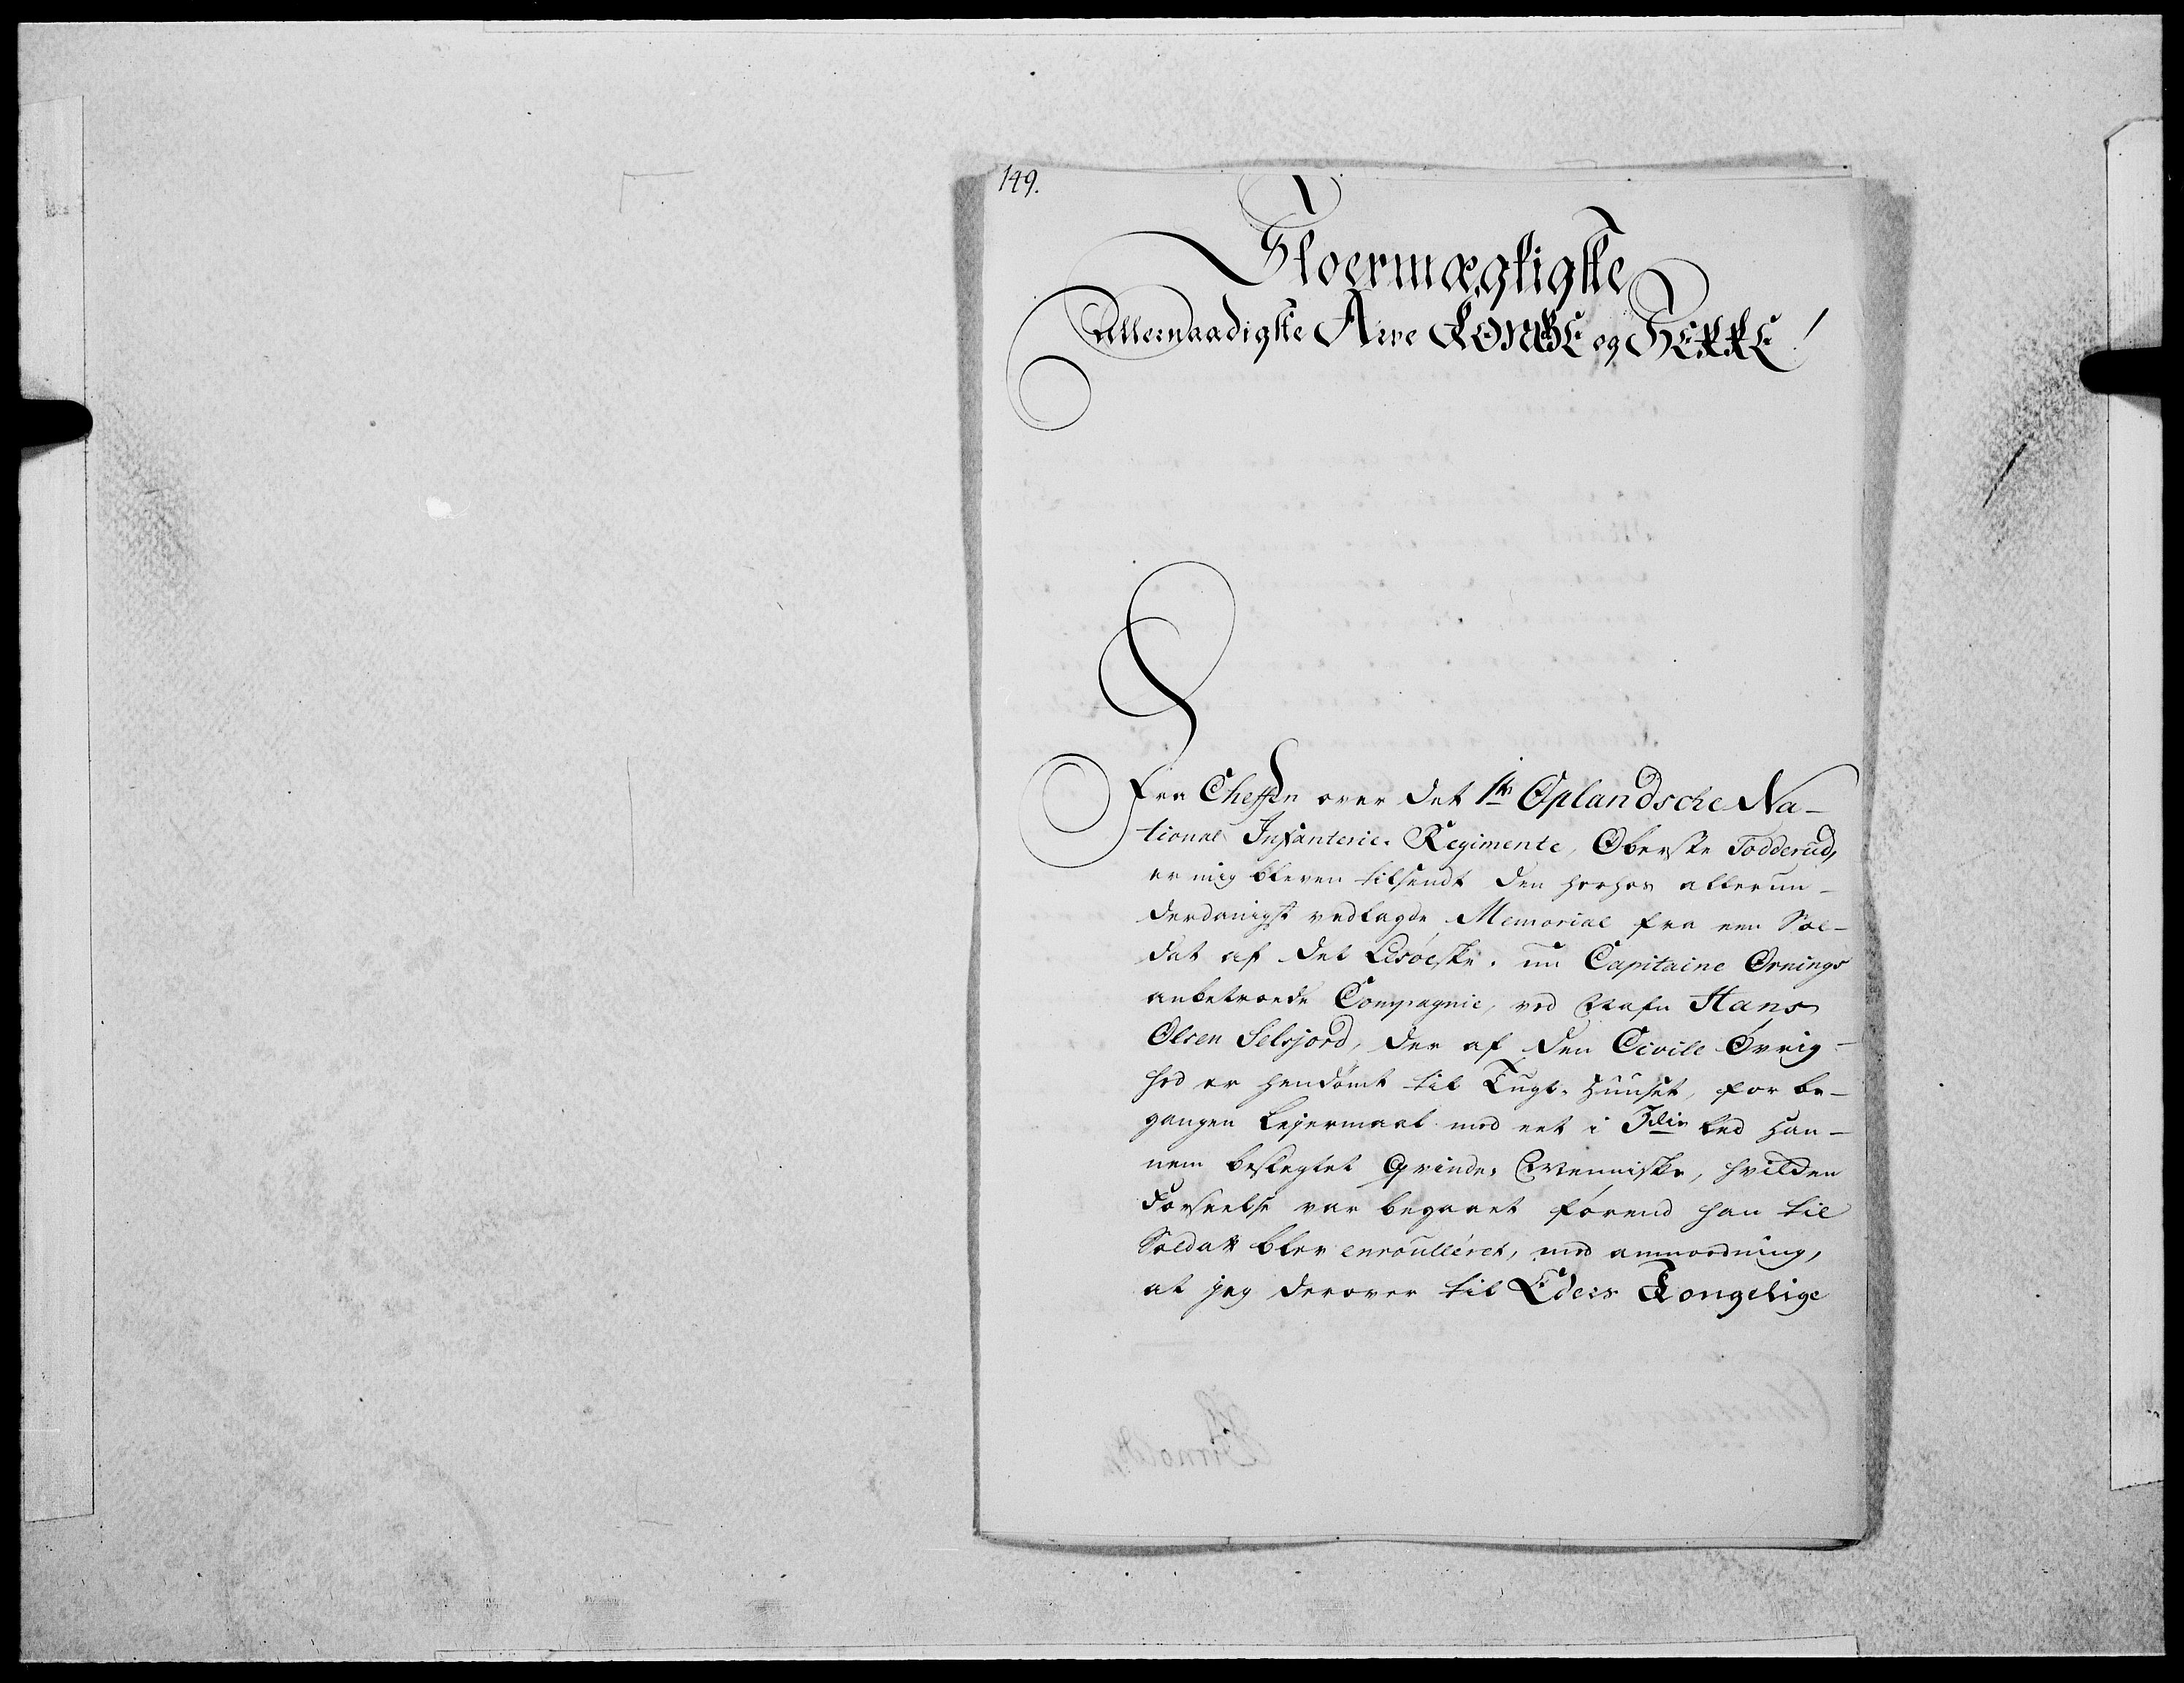 149.
Stoermægtigste
Allernaadigste Arve KONGE og HERRE!
Fra Cheffen over det 1te Oplandsche Na-
tional Infanterie-Regimente, Oberste Todderud,
er mig bleven tilsendt den hoshos allerun-
derdanigst vedlagde Memorial fra een Sol-
dat af det Lesøeske. nu Capitaine Ørnings
anbetroede Compagnie, ved Nafn Hans
Olsen Selsjord, der af den Civile Øvrig-
hed er hendømt til Tugt-Huuset, for be-
gangen Lejermaal med eet i 3die Led han-
nem beslegtet Qvinde-Menniske, hvilden
Forseelse var begaaet førend han til
Soldat blev enroulléret, med anmodning,
at jeg derover til Eders Kongelige